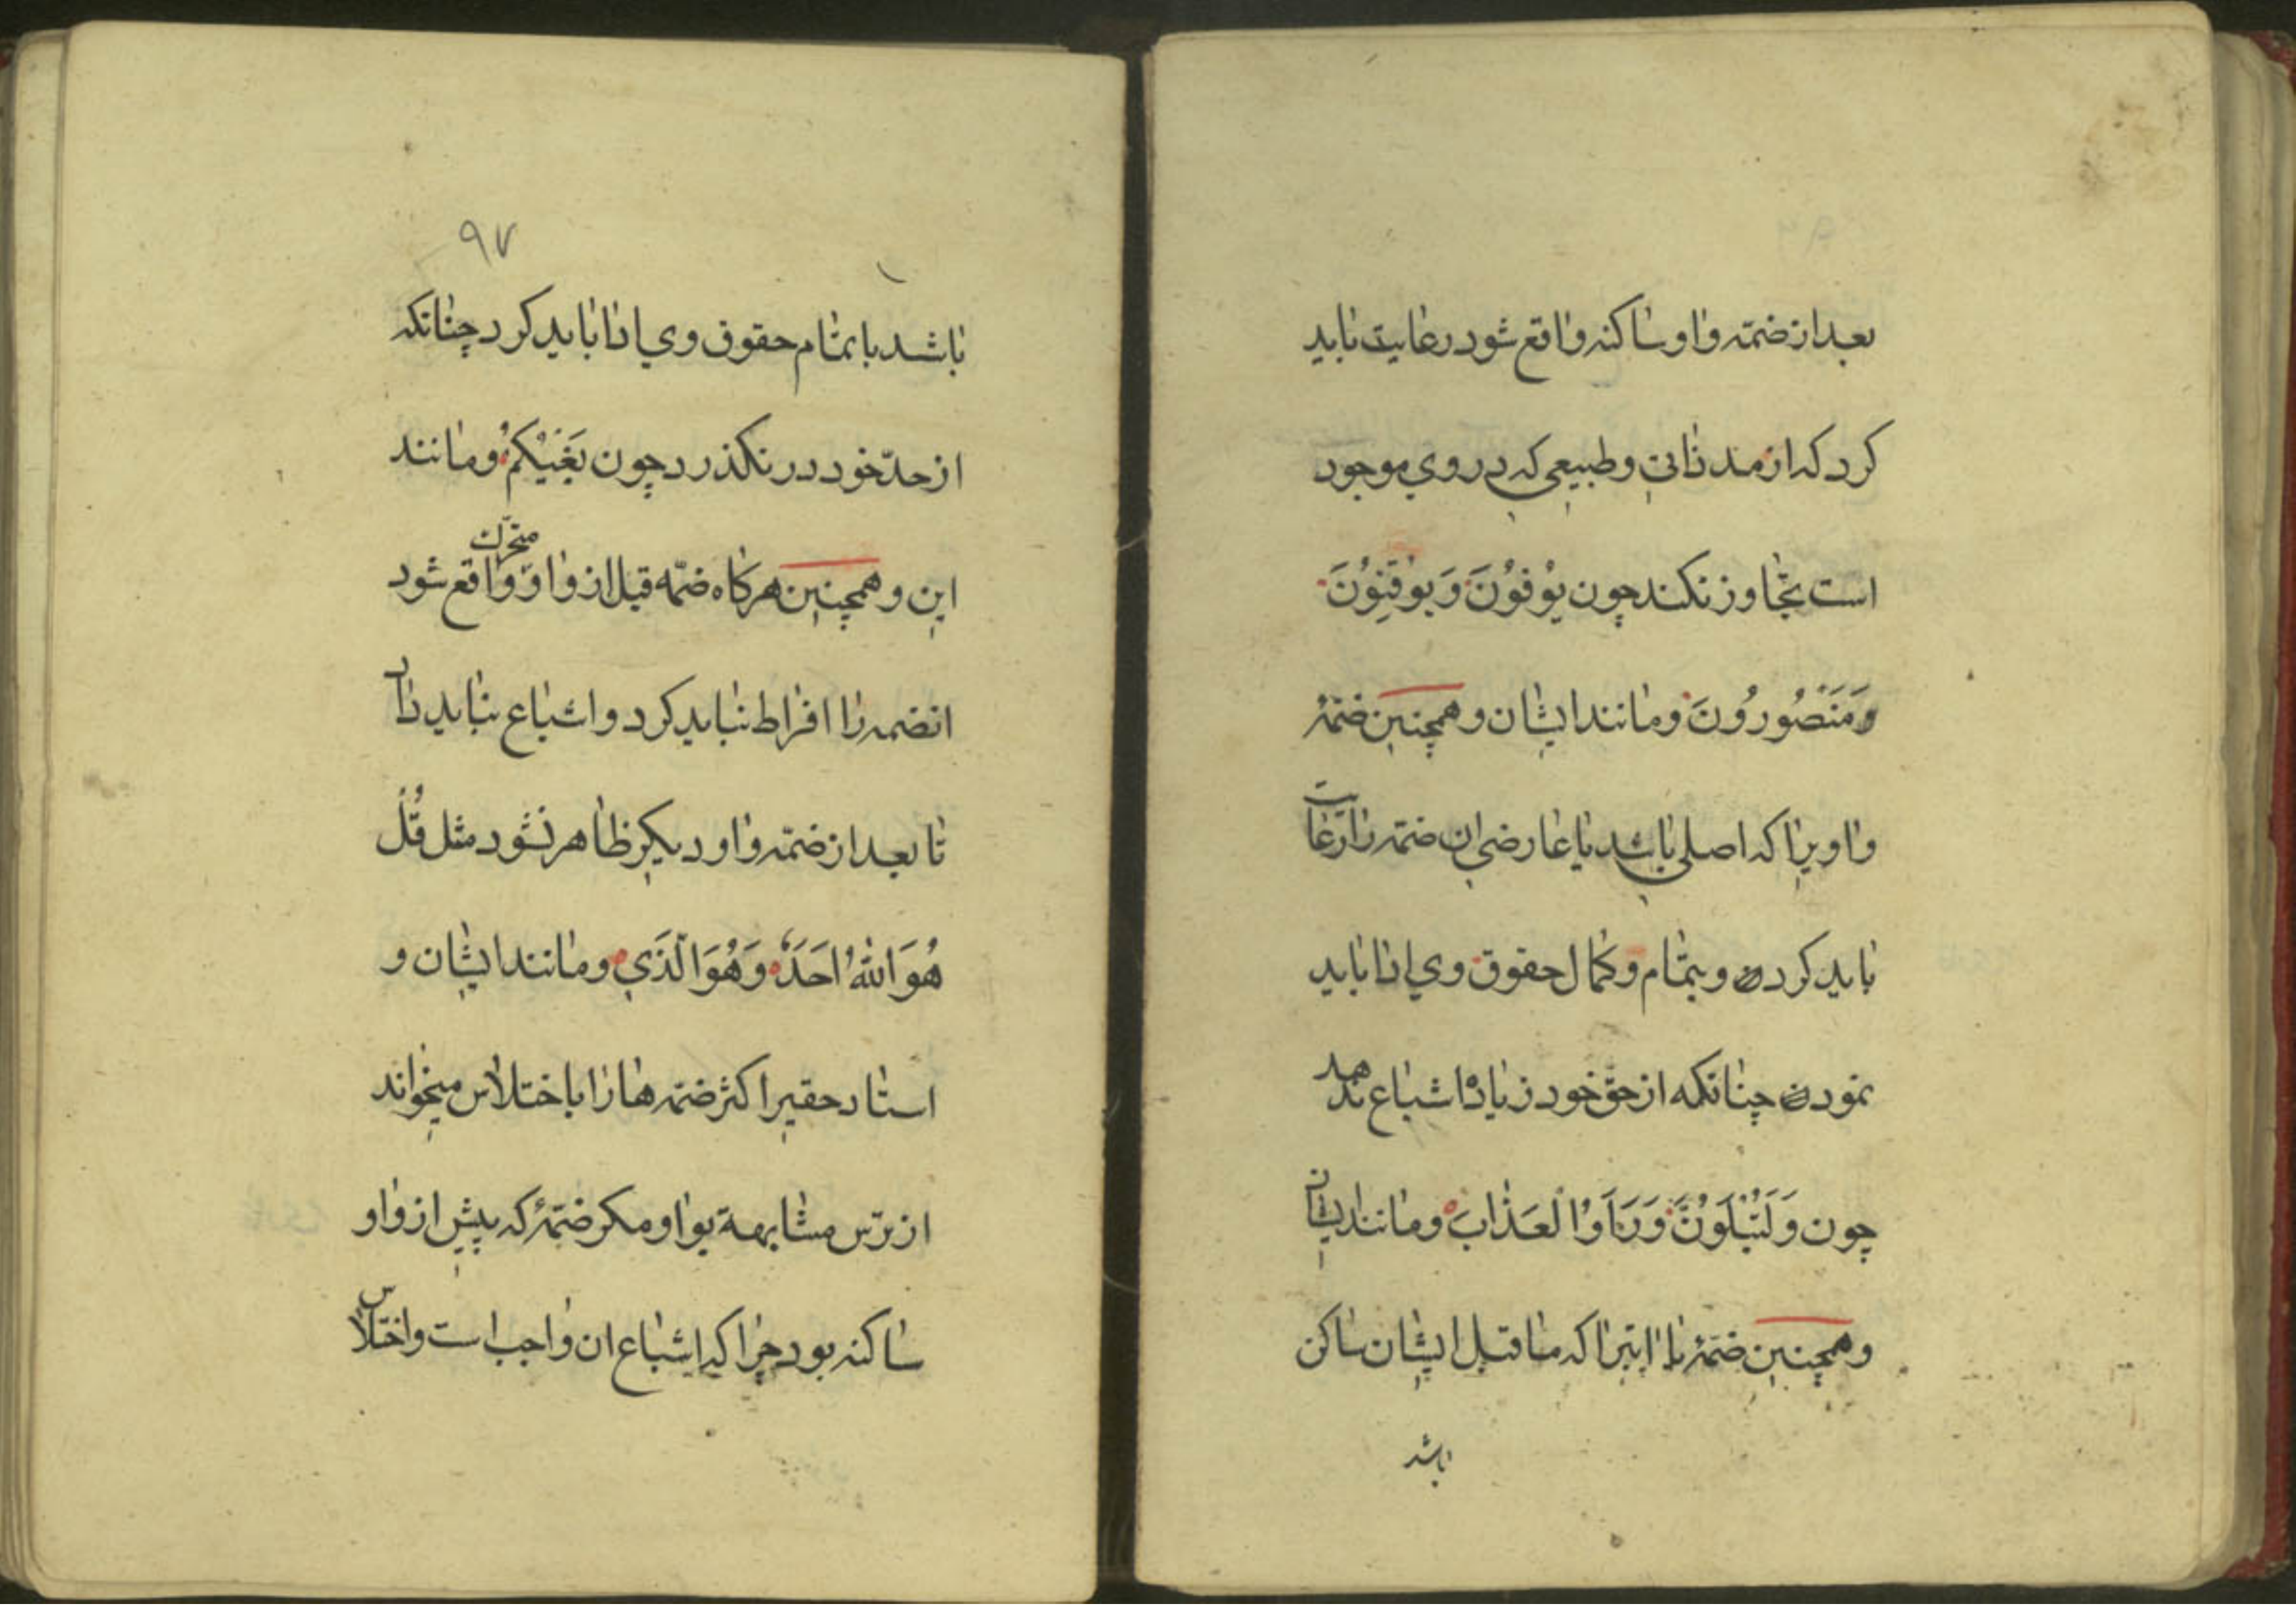 بعد از ضمّه واو ساکنه واقع شود رعایت باید
کرد که از مد ذاتی و طبیعی که در وی موجود
است تجاوز نکند چون یُوْفُوْنَ وَ یُوْقِنُوْنَ
وَمَنْصُورُونَ و مانند ایشان و همچنین ضمّهٔ
واویرا که اصلی باشد یا عارضی ان ضمّه را رعایت
باید کردن و بتمام و کمال حقوق وی ادا باید
نمودن چنانکه از حق خود زیاده اشباع ندهد
چون وَلَتُبْلَوُنَّ وَ رَاَوُا الْعَذٰابَ و مانند ایشان
و همچنین ضمّهٔ یا ایرا که ما قبل ایشان ساکن
باشد
٩٧
باشد با تمام حقوق وی ادا باید کرد چنانکه
از حدّ خود در نکذرد چون بَغْیُکُمْ و مانند
این و همچنین هرکاه ضمّه قبل از واو متحرّک واقع شود
انضمه را افراط نباید کرد و اشباع نباید داد
تا بعد از ضمّه واو دیکر ظاهر نشود مثل قُلْ
هُوَ اللّٰهُ اَحَدٌ وَهُوَ الَّذَی و مانند ایشان و
استاد حقیر اکثر ضمّه ها را با ختلاس میخواند
از ترس مشابهة بواو مکر ضمّهٔ که پیش از واو
ساکنه بود چرا که اشباع ان واجب است و اختلاس